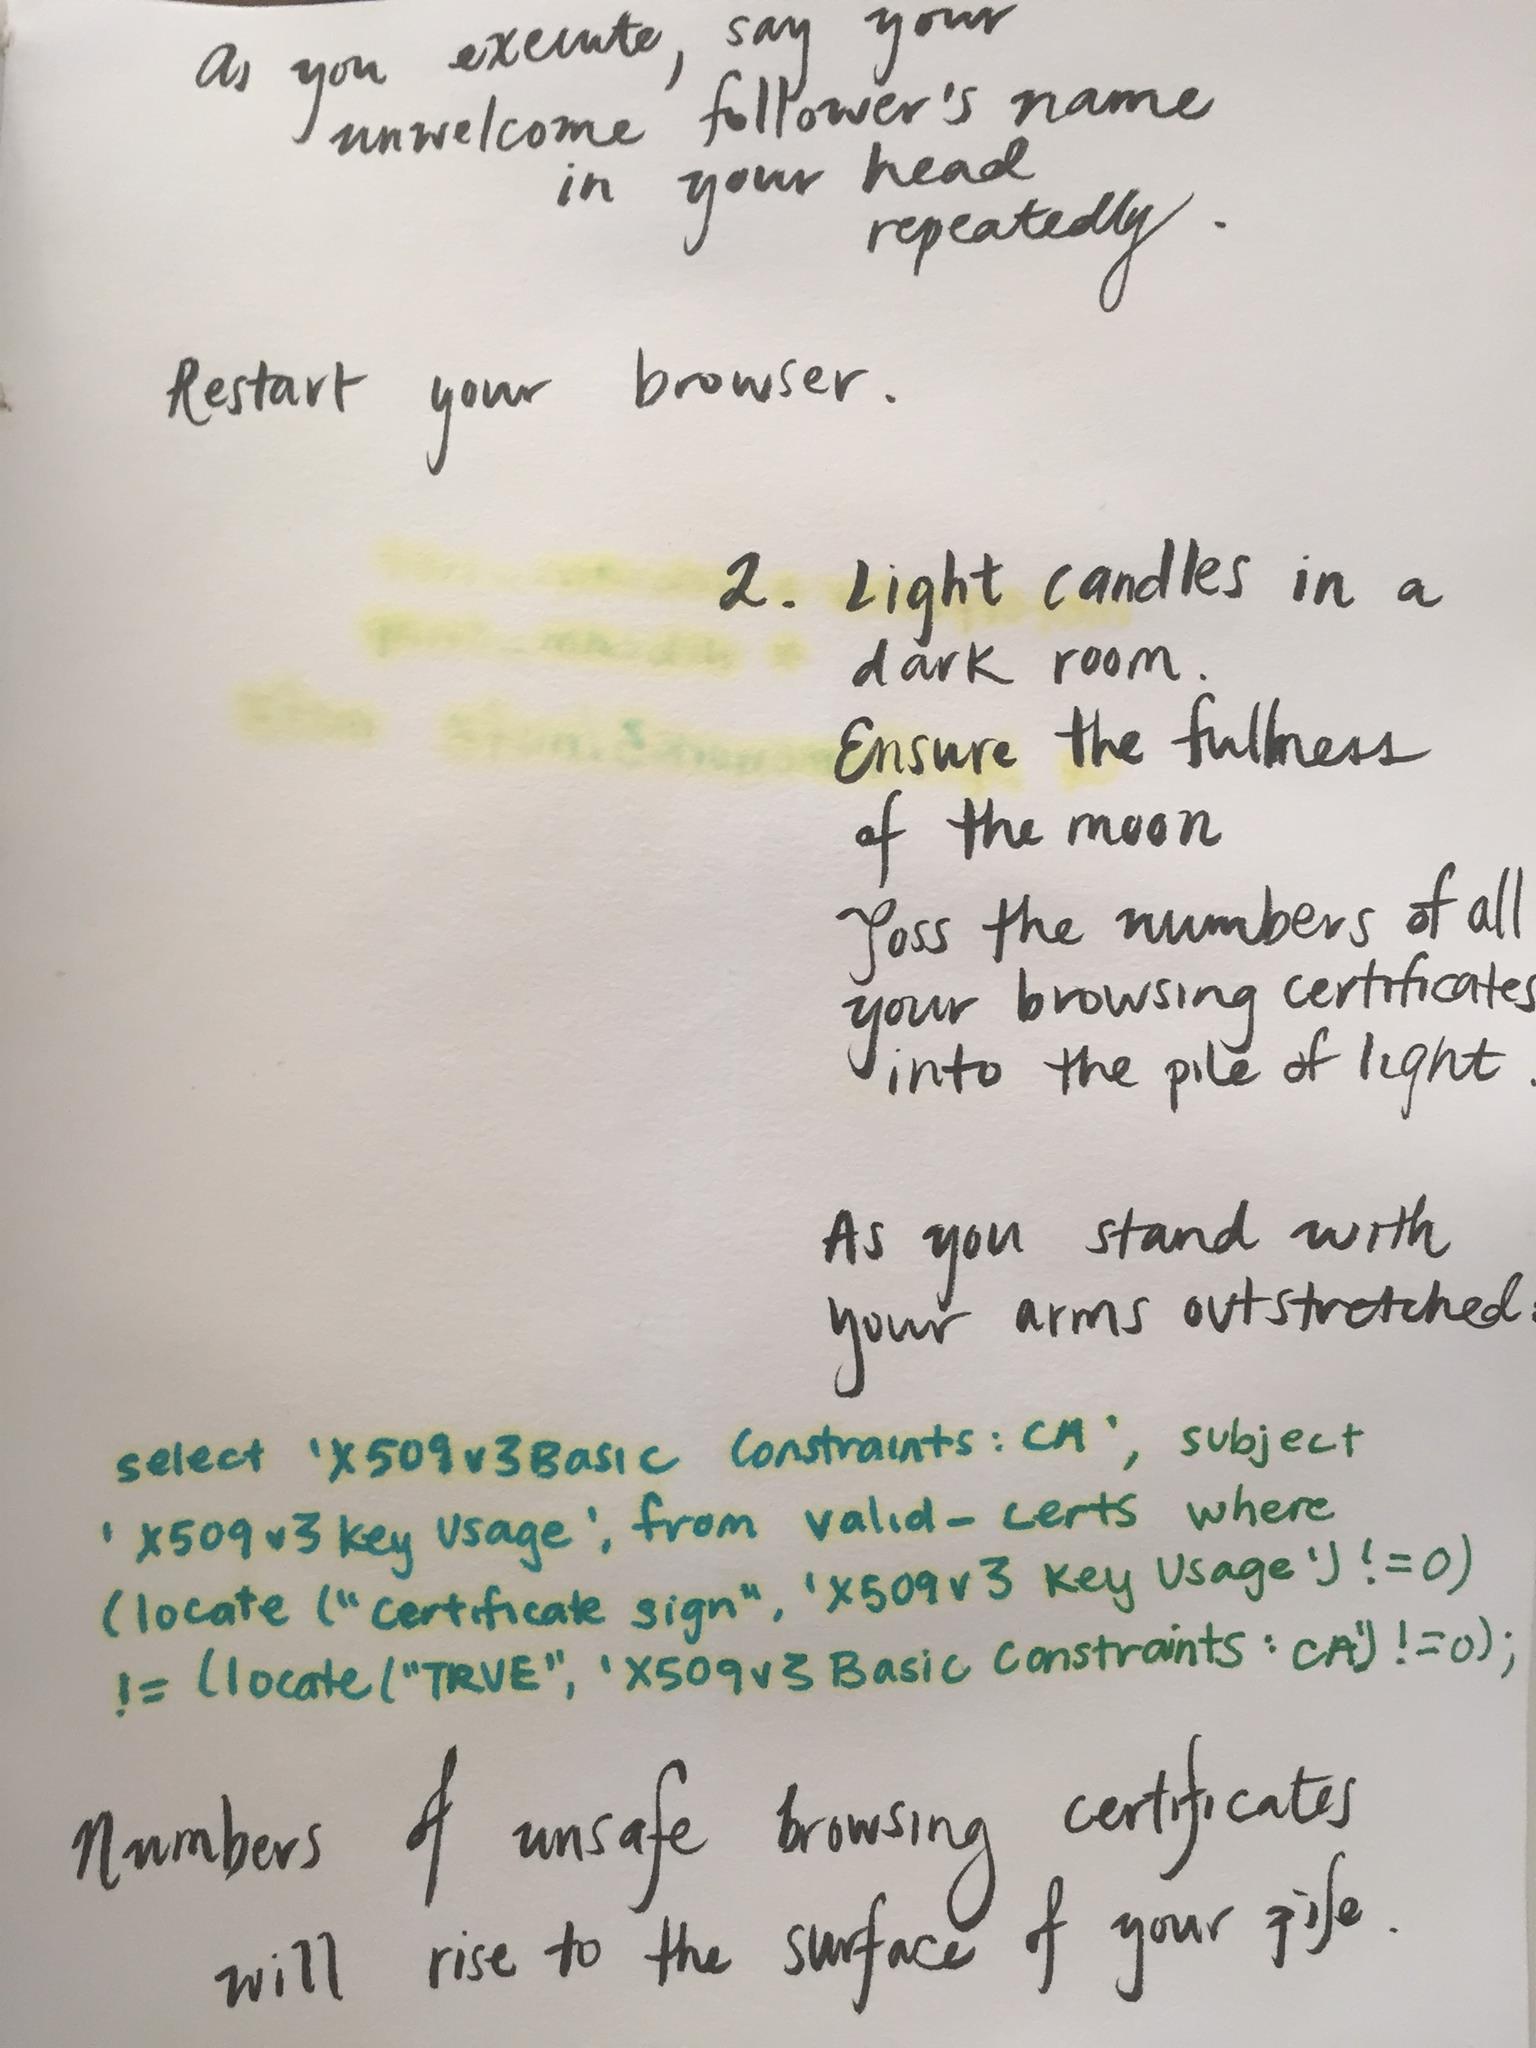 As you execute, say your
unwelcome follower's name
in your head
repeatedly.
Restart your browser.
2. Light candles in a
dark room.
Ensure the fullness
of the moon
Toss the numbers of all
your browsing certificates
into the pile of light.
As you stand with
your arms outstretched:
select 'X509v3Basic Constraints: CA', subject
'X509v3 Key Usage', from valid-certs where
(locate ("certificate sign", 'X509v3 Key Usage') != 0)
!= (locate("TRUE", 'X509v3 Basic Constraints: CA') != 0);
Numbers of unsafe browsing certificates
will rise to the surface of your pile.